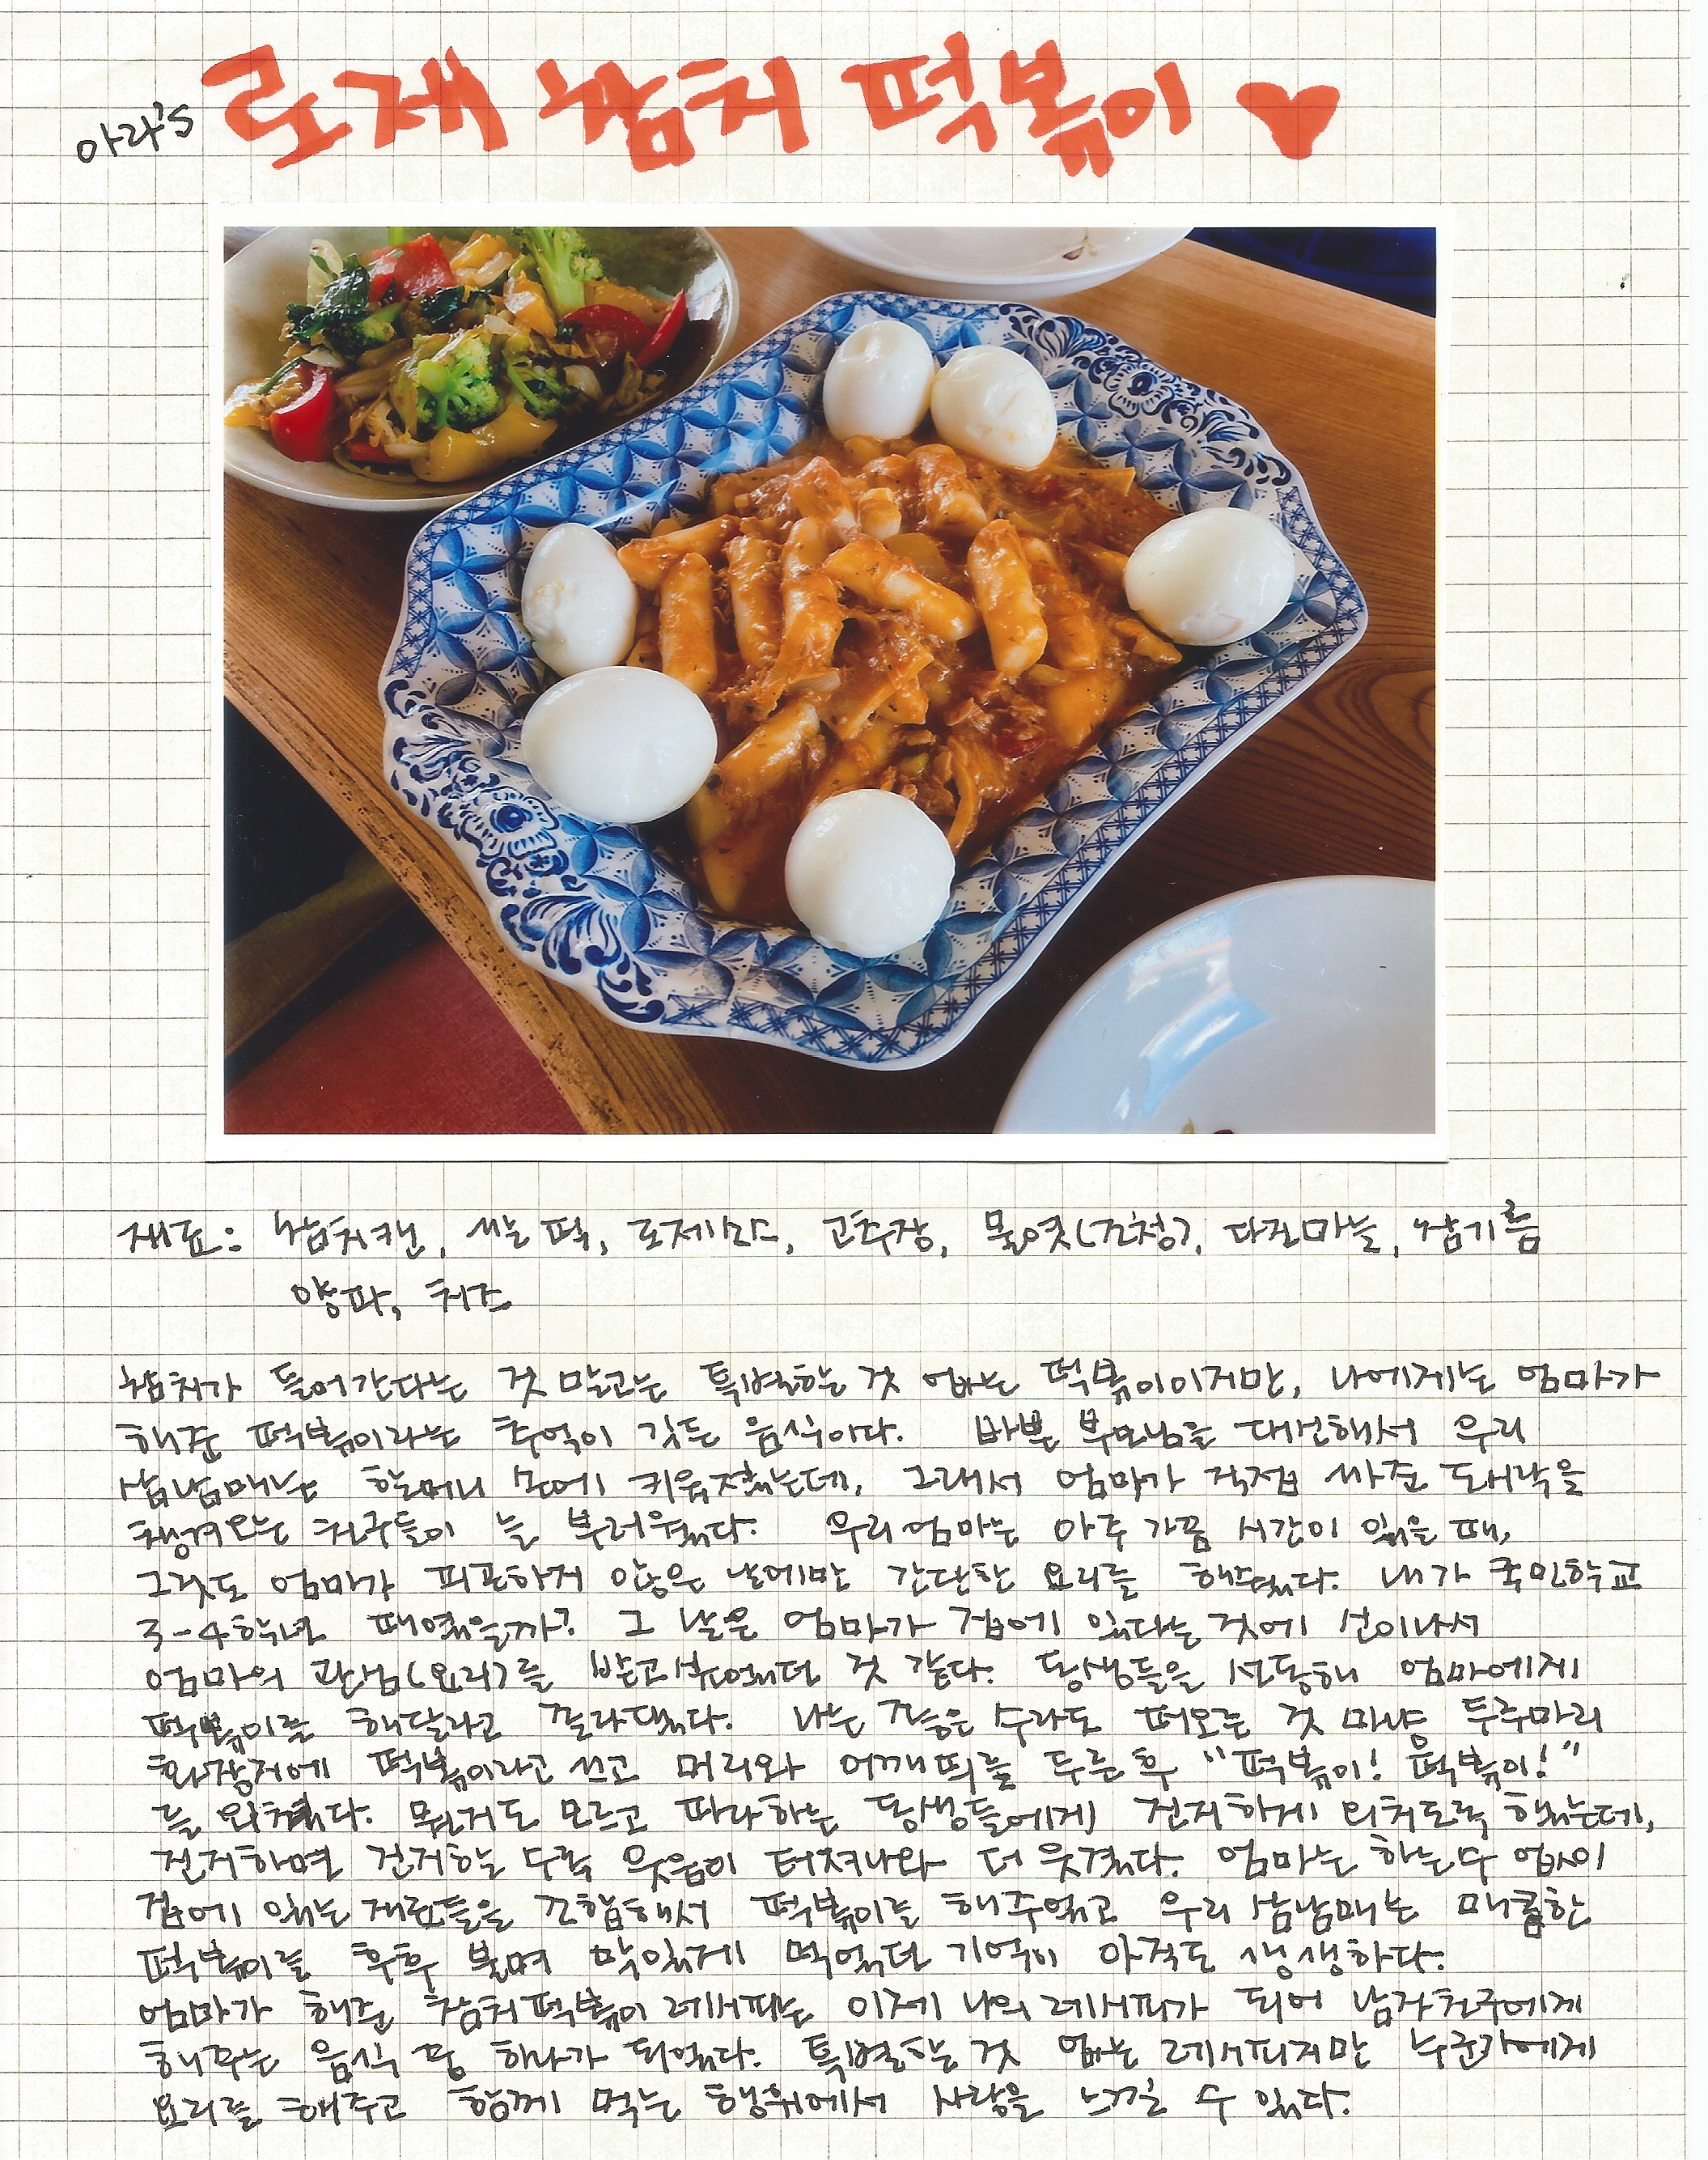 아라's 로제 참치 떡볶이 ♥
재료: 참치캔, 쌀 떡, 로제소스, 고추장, 물엿(조청), 다진마늘, 참기름
양파, 치즈
참치가 들어간다는 것 말고는 특별한 것 없는 떡볶이이지만, 나에게는 엄마가
해준 떡볶이라는 추억이 깃든 음식이다. 바쁜 부모님을 대신해서 우리
삼남매는 할머니 손에 키워졌는데, 그래서 엄마가 직접 싸준 도시락을
챙겨오는 친구들이 늘 부러웠다. 우리 엄마는 아주 가끔 시간이 있을 때,
그것도 엄마가 피곤하지 않은 날에만 간단한 요리를 해주었다. 내가 국민학교
3-4학년 때였을까? 그 날은 엄마가 집에 있다는 것에 신이나서
엄마의 관심(요리)를 받고싶었던 것 같다. 동생들을 선동해 엄마에게
떡볶이를 해달라고 졸라댔다. 나는 좋은 수라도 떠오른 것 마냥 두루마리
화장지에 떡볶이라고 쓰고 머리와 어깨띠를 두른 후 "떡볶이! 떡볶이!"
를 외쳤다. 뭔지도 모르고 따라하는 동생들에게 진지하게 외치도록 했는데,
진지하면 진지할 수록 웃음이 터져나와 더 웃겼다. 엄마는 하는수 없이
집에 있는 재료들을 조합해서 떡볶이를 해주었고 우리 삼남매는 매콤한
떡볶이를 후후 불며 맛있게 먹었던 기억이 아직도 생생하다.
엄마가 해준 참치떡볶이 레시피는 이제 나의 레시피가 되어 남자친구에게
해주는 음식 중 하나가 되었다. 특별한 것 없는 레시피지만 누군가에게
요리를 해주고 함께 먹는 행위에서 사랑을 느낄 수 있다.